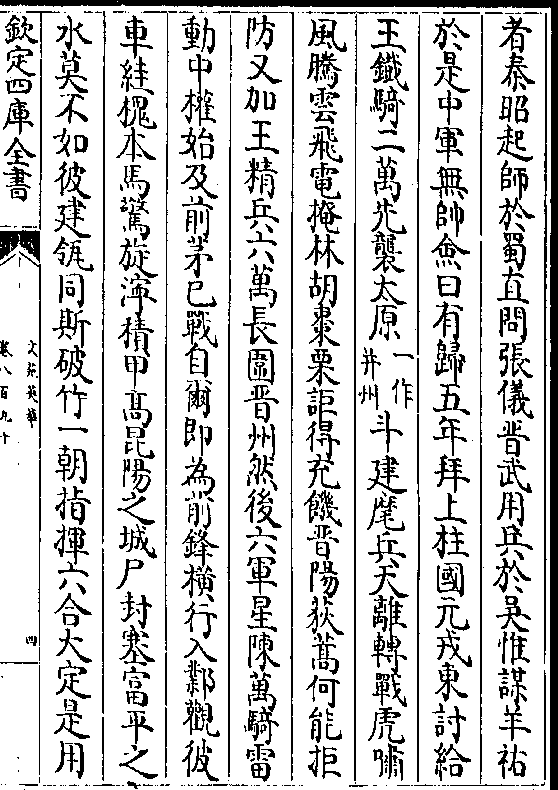 者秦昭起師於蜀直問張儀晋武用兵於吳惟謀羊祐
於是中軍無帥僉曰有歸五年拜上柱國元戎東討給
王鐵騎二萬先襲太原一作并州斗建麾兵天離轉戰虎嘯
風騰雲飛電掩林胡棗栗詎得充饑晋陽荻蒿何能拒
防又加王精兵六萬長圍晋州然後六軍星陳萬騎雷
動中權始及前茅已戰自爾即為前鋒横行入鄴觀彼
車絓槐本馬驚旋濘積甲髙昆陽之城尸封塞富平之
水莫不如彼建瓴同斯破竹一朝指揮六合大定是用
欽定四庫全書
文苑英華
卷八百九十
四